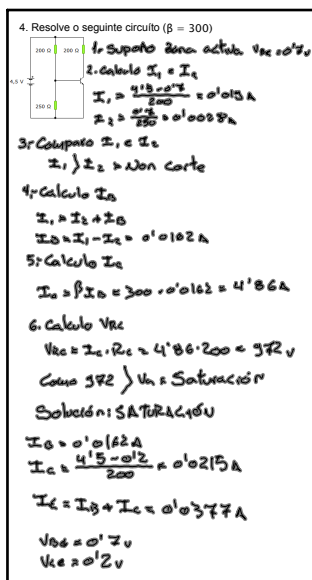 4. Resolve o seguinte circuíto (β = 300)
200 Ω 200 Ω
4,5 V
250 Ω
1. Supoño zona activa VBE = 0'7v
2. Calculo I1 e I2
I1 = 4'5-0'7 / 200 = 0'019A
I2 = 0'7 / 250 = 0'0028A
3. Comparo I1 e I2
I1 > I2 = Non corte
4. Calculo IB
I1 = I2 + IB
IB = I1 - I2 = 0'0162A
5. Calculo Ic
Ic = βIB = 300 · 0'0162 = 4'86A
6. Calculo VRC
VRC = Ic · Rc = 4'86 · 200 = 972v
Como 972 > Vcc = Saturación
Solución: SATURACIÓN
IB = 0'0162A
Ic = 4'5-0'2 / 200 = 0'0215A
IE = IB + Ic = 0'0377A
VBE = 0'7v
VCE = 0'2v